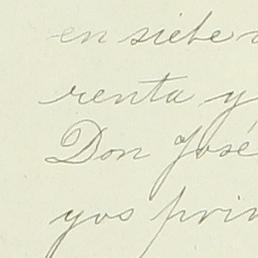 en siete
renta y
Don José
yos prin